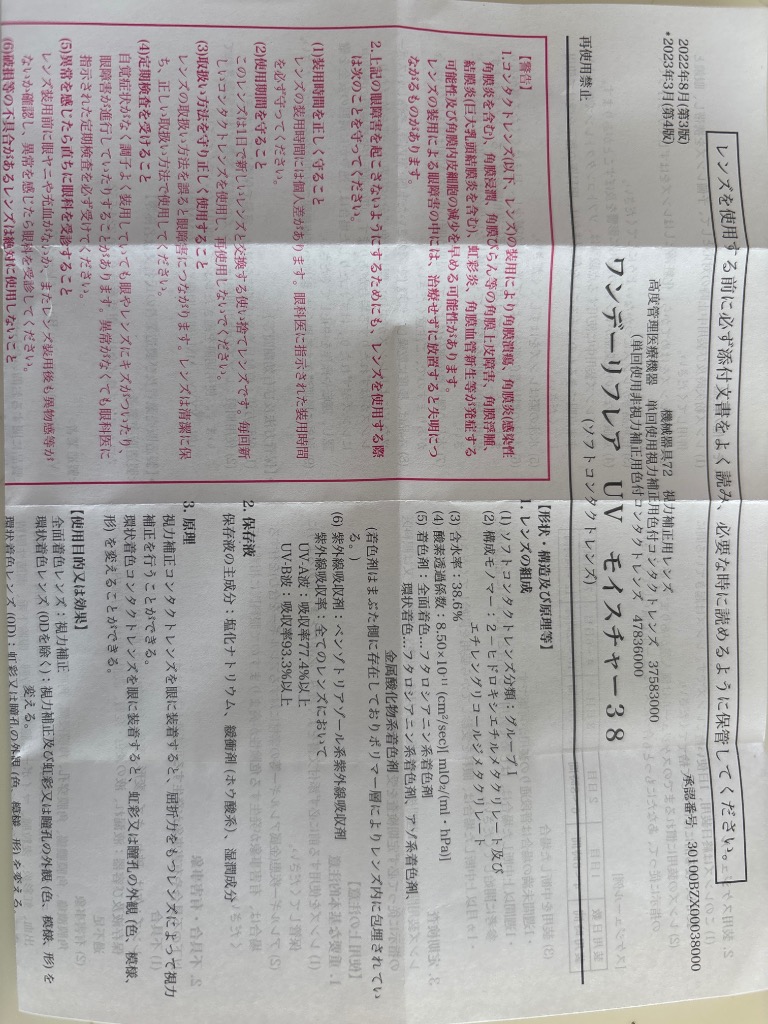 レンズを使用する前に必ず添付文書をよく読み、必要な時に読めるように保管してください。
2022年8月(第3版)
*2023年3月(第4版)
承認番号 30100BZX00038000
機械器具72 視力補正用レンズ
高度管理医療機器 単回使用視力補正用色付コンタクトレンズ 37583000
(単回使用非視力補正用色付コンタクトレンズ 47836000
ワンデーリフレア UV モイスチャー38
(ソフトコンタクトレンズ)
再使用禁止
【警告】
1.コンタクトレンズ(以下、レンズ)の装用により角膜潰瘍、角膜炎(感染性
角膜炎を含む)、角膜浸潤、角膜びらん等の角膜上皮障害、角膜浮腫、
結膜炎(巨大乳頭結膜炎を含む)、虹彩炎、角膜血管新生等が発症する
可能性及び角膜内皮細胞の減少を早める可能性があります。
レンズの装用による眼障害の中には、治療せずに放置すると失明につ
ながるものがあります。
2.上記の眼障害を起こさないようにするためにも、レンズを使用する際
は次のことを守ってください。
(1)装用時間を正しく守ること
レンズの装用時間には個人差があります。眼科医に指示された装用時間
を必ず守ってください。
(2)使用期間を守ること
このレンズは1日で新しいレンズと交換する使い捨てレンズです。毎回新
しいコンタクトレンズを使用し、再使用しないでください。
(3)取扱い方法を守り正しく使用すること
レンズの取扱い方法を誤ると眼障害につながります。レンズは清潔に保
ち、正しい取扱い方法で使用してください。
(4)定期検査を受けること
自覚症状がなく調子よく装用していても眼やレンズにキズがついたり、
眼障害が進行していたりすることがあります。異常がなくても眼科医に
指示された定期検査を必ず受けてください。
(5)異常を感じたら直ちに眼科を受診すること
レンズ装用前に眼ヤニや充血がないか、またレンズ装用後も異物感等が
ないか確認し、異常を感じたら眼科を受診してください。
(6)破損等の不具合があるレンズは絶対に使用しないこと
【形状・構造及び原理等】
1. レンズの組成
(1) ソフトコンタクトレンズ分類:グループⅠ
(2) 構成モノマー:2-ヒドロキシエチルメタクリレート及び
エチレングリコールジメタクリレート
(3) 含水率:38.6%
(4) 酸素透過係数:8.50×10⁻¹¹ (cm²/sec)[ mlO₂/(ml・hPa)]
(5) 着色剤:全面着色…フタロシアニン系着色剤
環状着色…フタロシアニン系着色剤、アゾ系着色剤、
金属酸化物系着色剤
(着色剤はまぶた側に存在しておりポリマー層によりレンズ内に包埋されてい
る。)
(6) 紫外線吸収剤:ベンゾトリアゾール系紫外線吸収剤
紫外線吸収率:全てのレンズにおいて
UV-A波:吸収率77.4%以上
UV-B波:吸収率93.3%以上
2. 保存液
保存液の主成分:塩化ナトリウム、緩衝剤 (ホウ酸系)、湿潤成分
3. 原理
視力補正コンタクトレンズを眼に装着すると、屈折力をもつレンズによって視力
補正を行うことができる。
環状着色コンタクトレンズを眼に装着すると、虹彩又は瞳孔の外観 (色、模様、
形) を変えることができる。
【使用目的又は効果】
全面着色レンズ:視力補正
環状着色レンズ (0Dを除く):視力補正及び虹彩又は瞳孔の外観 (色、模様、形) を
変える。
環状着色レンズ (0D):虹彩又は瞳孔の外観 (色、模様、形) を変える。